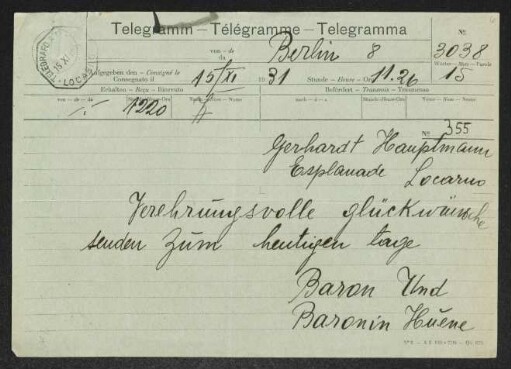 Telegramm – Télégramme – Telegramma
von – de
da
Berlin 8
№ 3038
Wörter – Mots – Parole
15
Aufgegeben den – Consigné le
Consegnato il
15/XI 1931
Stunde – Heure – Ora 11.26
Erhalten – Reçu – Ricevuto
Befördert – Transmis – Trasmesso
von – de – da
Stunde-Heure-Ora
Name – Nom – Nome
nach – à – a
Stunde-Heure-Ora
Name – Nom – Nome
1220
№ 355
Gerhardt Hauptmann
Esplanade Locarno
Verehrungsvolle glückwünsche
senden zum heutigen tage
Baron Und
Baronin Huene